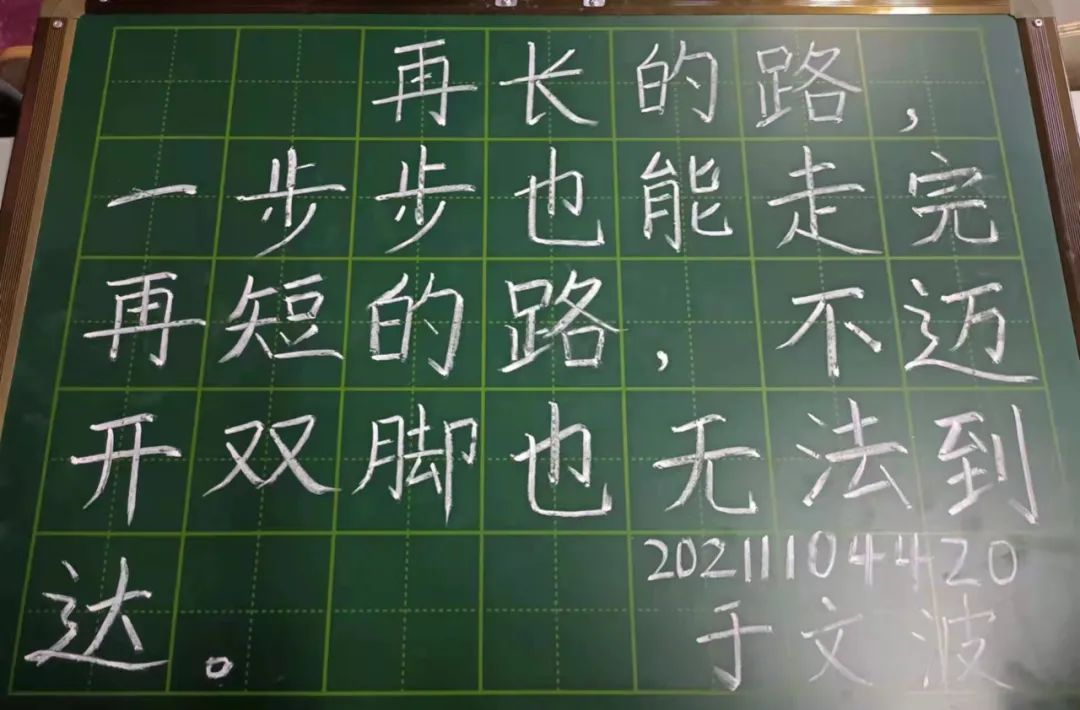 再长的路，
一步步也能走完
再短的路，不迈
开双脚也无法到
达。
20211104420
于文波